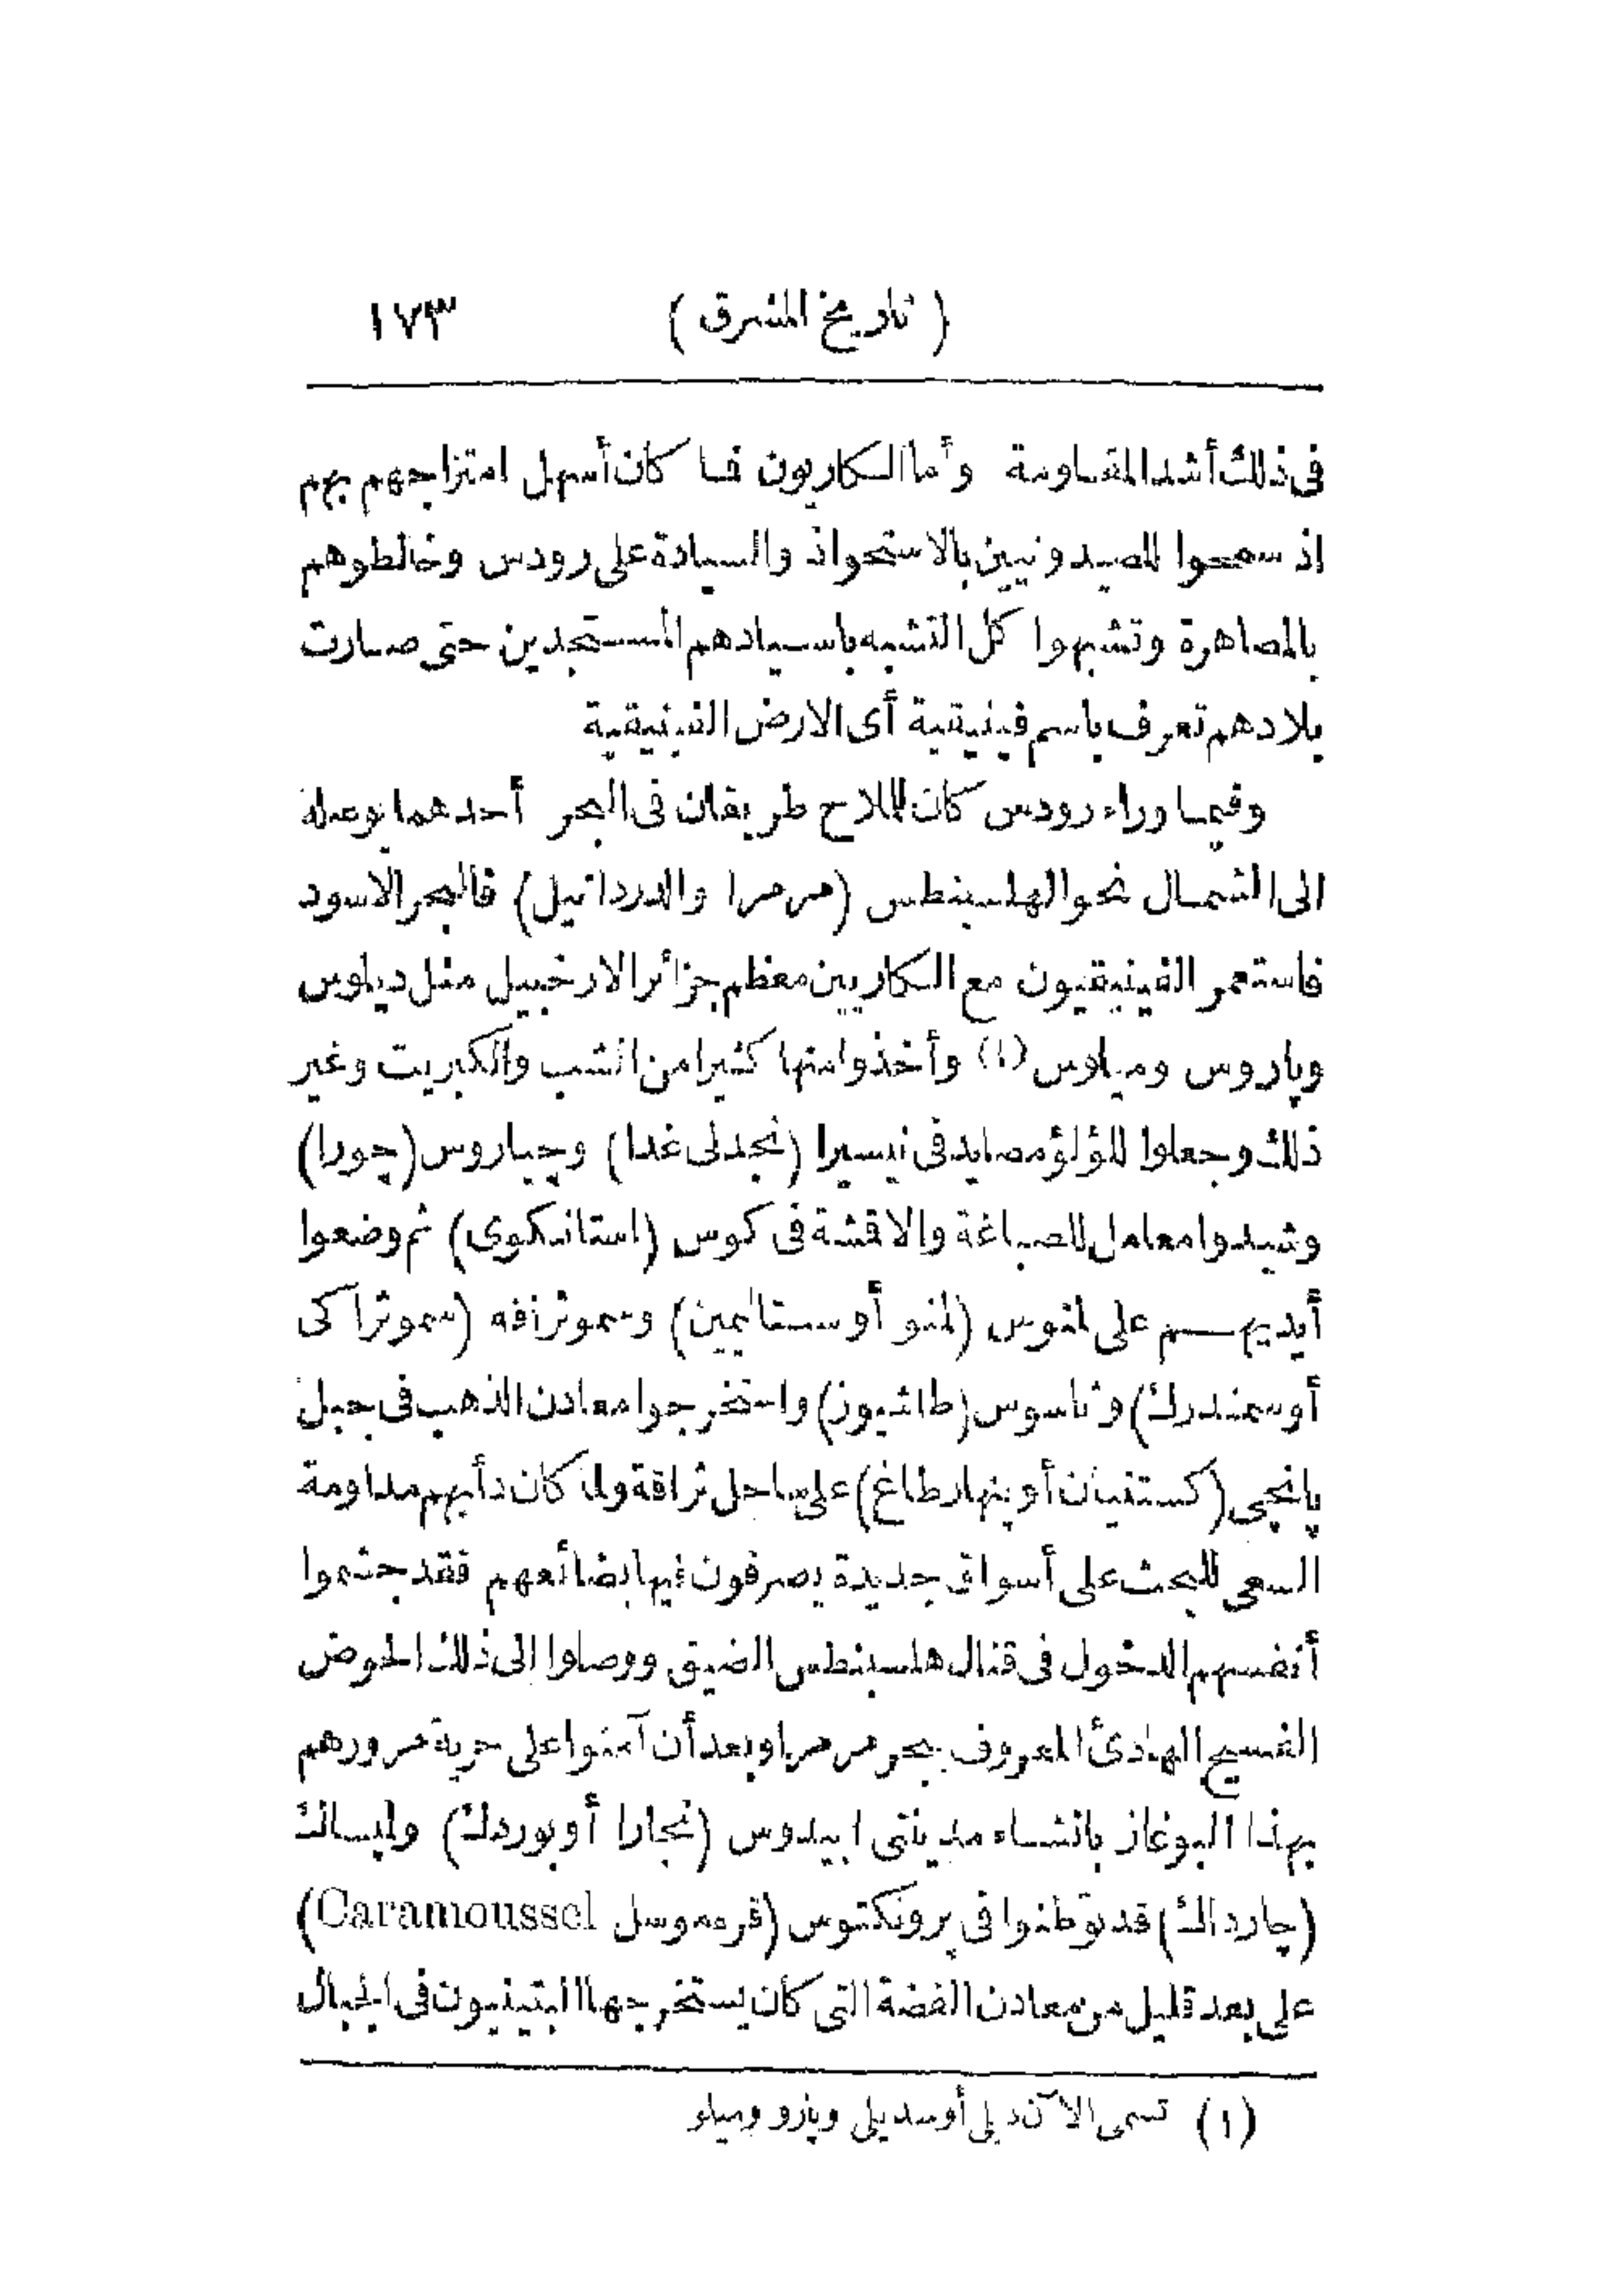 ( تاريخ المشرق ) ١٧٣
فى ذلك أشد المقاومة وأما الكاريون فما كان أسهل امتزاجهم بهم
اذ سمحوا للصيدونيين بالاستحواذ والسيادة على رودس وخالطوهم
بالمصاهرة وتشبهوا كل التشبه باسيادهم المستجدين حتى صارت
بلادهم تعرف باسم فينيقية أى الارض الفينيقية
وفيما وراء رودس كان للملاح طريقان فى البحر أحدهما يوصله
الى الشمال نحو الهلسبنطس (مرمرا والدردانيل) فالبحر الاسود
فاستعمر الفينيقيون مع الكاريين معظم جزائر الارخبيل مثل ديلوس
وپاروس وميلوس (١) وأخذوا منها كثيرا من الشب والكبريت وغير
ذلك وجعلوا للؤلؤ مصايد فى نيسيرا (نجدلى غدا) وجياروس (چورا)
وشيدوا معامل للصباغة والاقشة فى كوس (استانكوى) ثم وضعوا
أيديهم على لمنوس (لمنو أو ستاليمين) وسموثراقه (سموثراكى
أو سمندرك) وثاسوس (طاشيوز) واستخرجوا معادن الذهب فى جبل
پانجى (كستنيان أو پنهارطاغ) على ساحل ثراقة ولما كان دأبهم مداومة
السعى للبحث على أسواق جديدة يصرفون فيها بضائعهم فقد جشموا
أنفسهم الدخول فى قنال هلسبنطس الضيق ووصلوا الى ذلك الحوض
الفسيح الهادئ المعروف ببحر مرمرا وبعد أن آمنوا على حرية مرورهم
بهذا البوغاز بانشاء مدينتى ابيدوس (نجارا أو بوردك) ولپساك
(چارداك) قد توطنوا فى پرونكتوس (قرموسل Caramoussel)
على بعد قليل من معادن الفضة التى كان يستخرجها البتينيون فى الجبال
(١) تسمى الآن ديلى أو سديلى وپارو وميلو